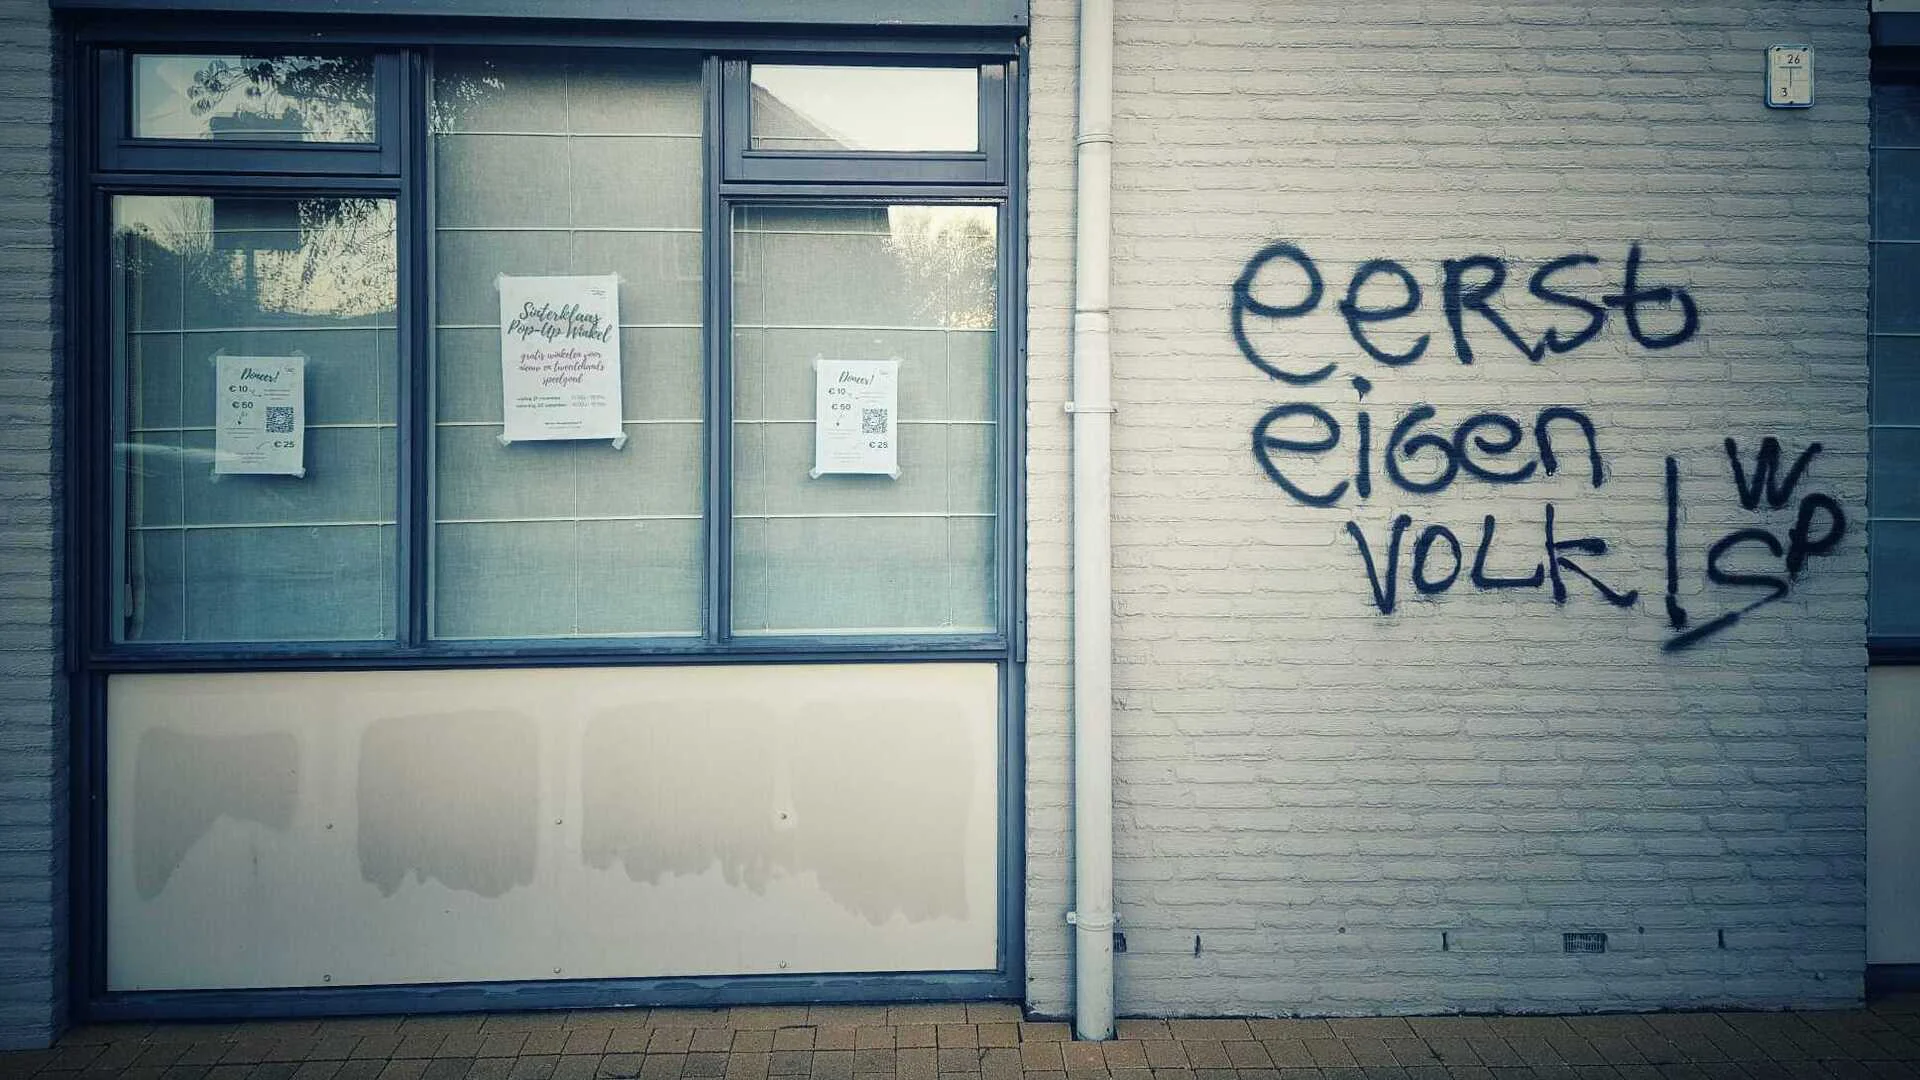 Doneer!
€ 10
€ 50
€ 25
Sinterklaas
Pop-Up Winkel
gratis winkelen voor
nieuw en tweedehands
speelgoed
Doneer!
€ 10
€ 50
€ 25
eerst
eigen
volk!
W
SP
26
3